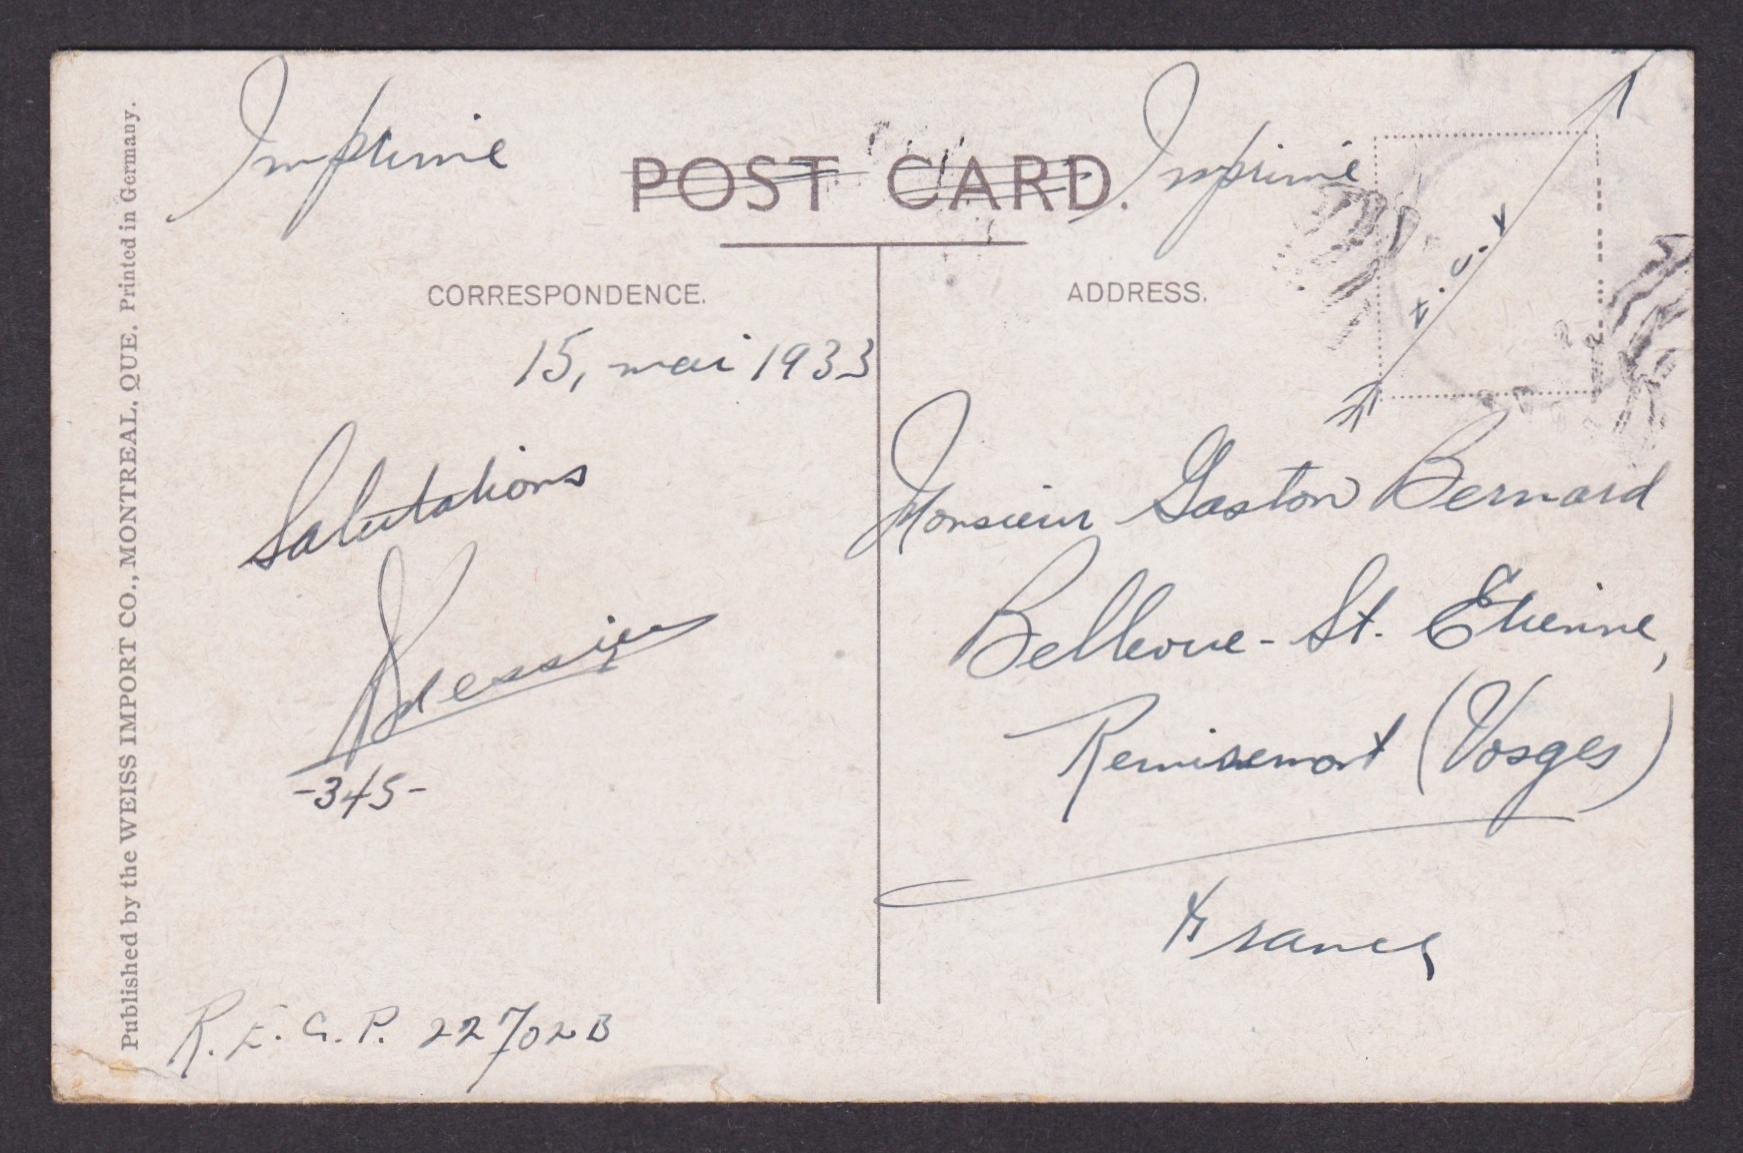 Imprimé
POST CARD.
Imprimé
t.c.v
CORRESPONDENCE.
ADDRESS.
15, mai 1933
Salutations
-345-
R.E.G.P. 22702B
Monsieur Gaston Bernard
Bellevue - St. Etienne,
Remiremont (Vosges)
France
Published by the WEISS IMPORT CO., MONTREAL, QUE. Printed in Germany.